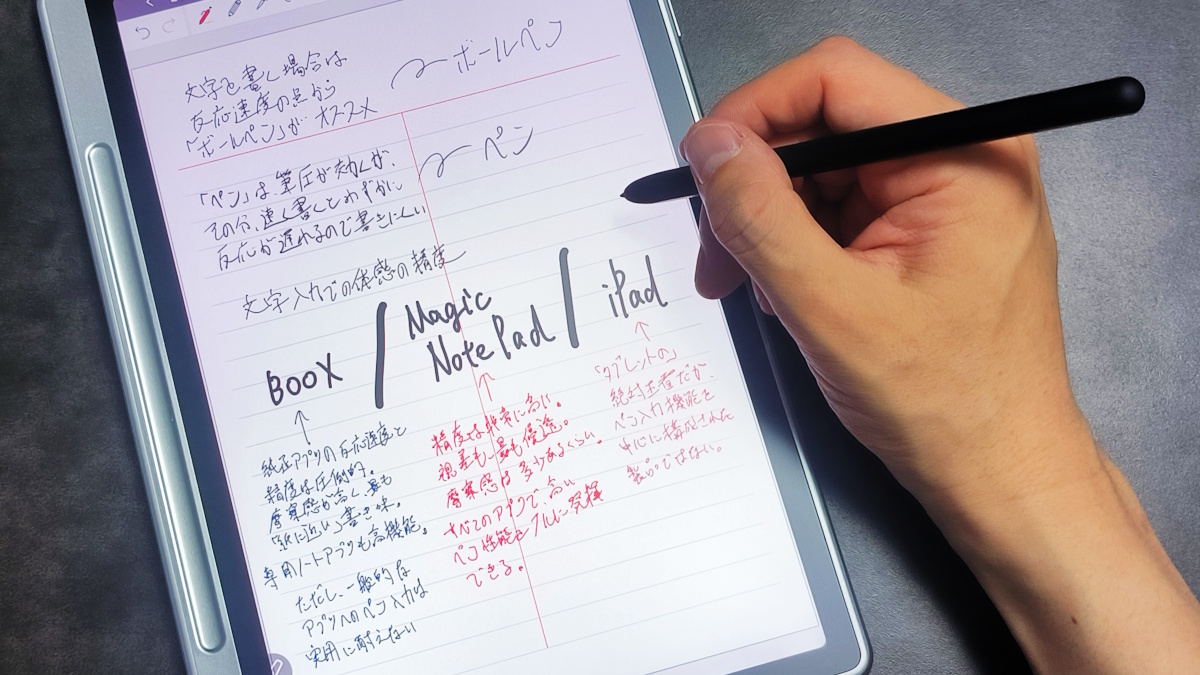 文字を書く場合は
反応速度の点から
「ボールペン」が オススメ
ボールペン
「ペン」は、筆圧が効くが、
その分、速く書くとわずかに
反応が遅れるので書きにくい
ペン
文字入力での体感の精度
BOOX / Magic NotePad / iPad
純正アプリの反応速度と
精度は圧倒的。
摩擦感が高く、最も
「紙に近い」書き味。
専用ノートアプリも高機能。
ただし、一般的な
アプリへのペン入力は
実用に耐えない
精度は非常に高い。
視差も、最も優途。
摩擦感は多少あるくらい。
すべてのアプリで高い
ペン性能をフルに発揮
できる。
「タブレットの」
絶対王者だが、
ペン入力機能を
中心に構成された
製品ではない。